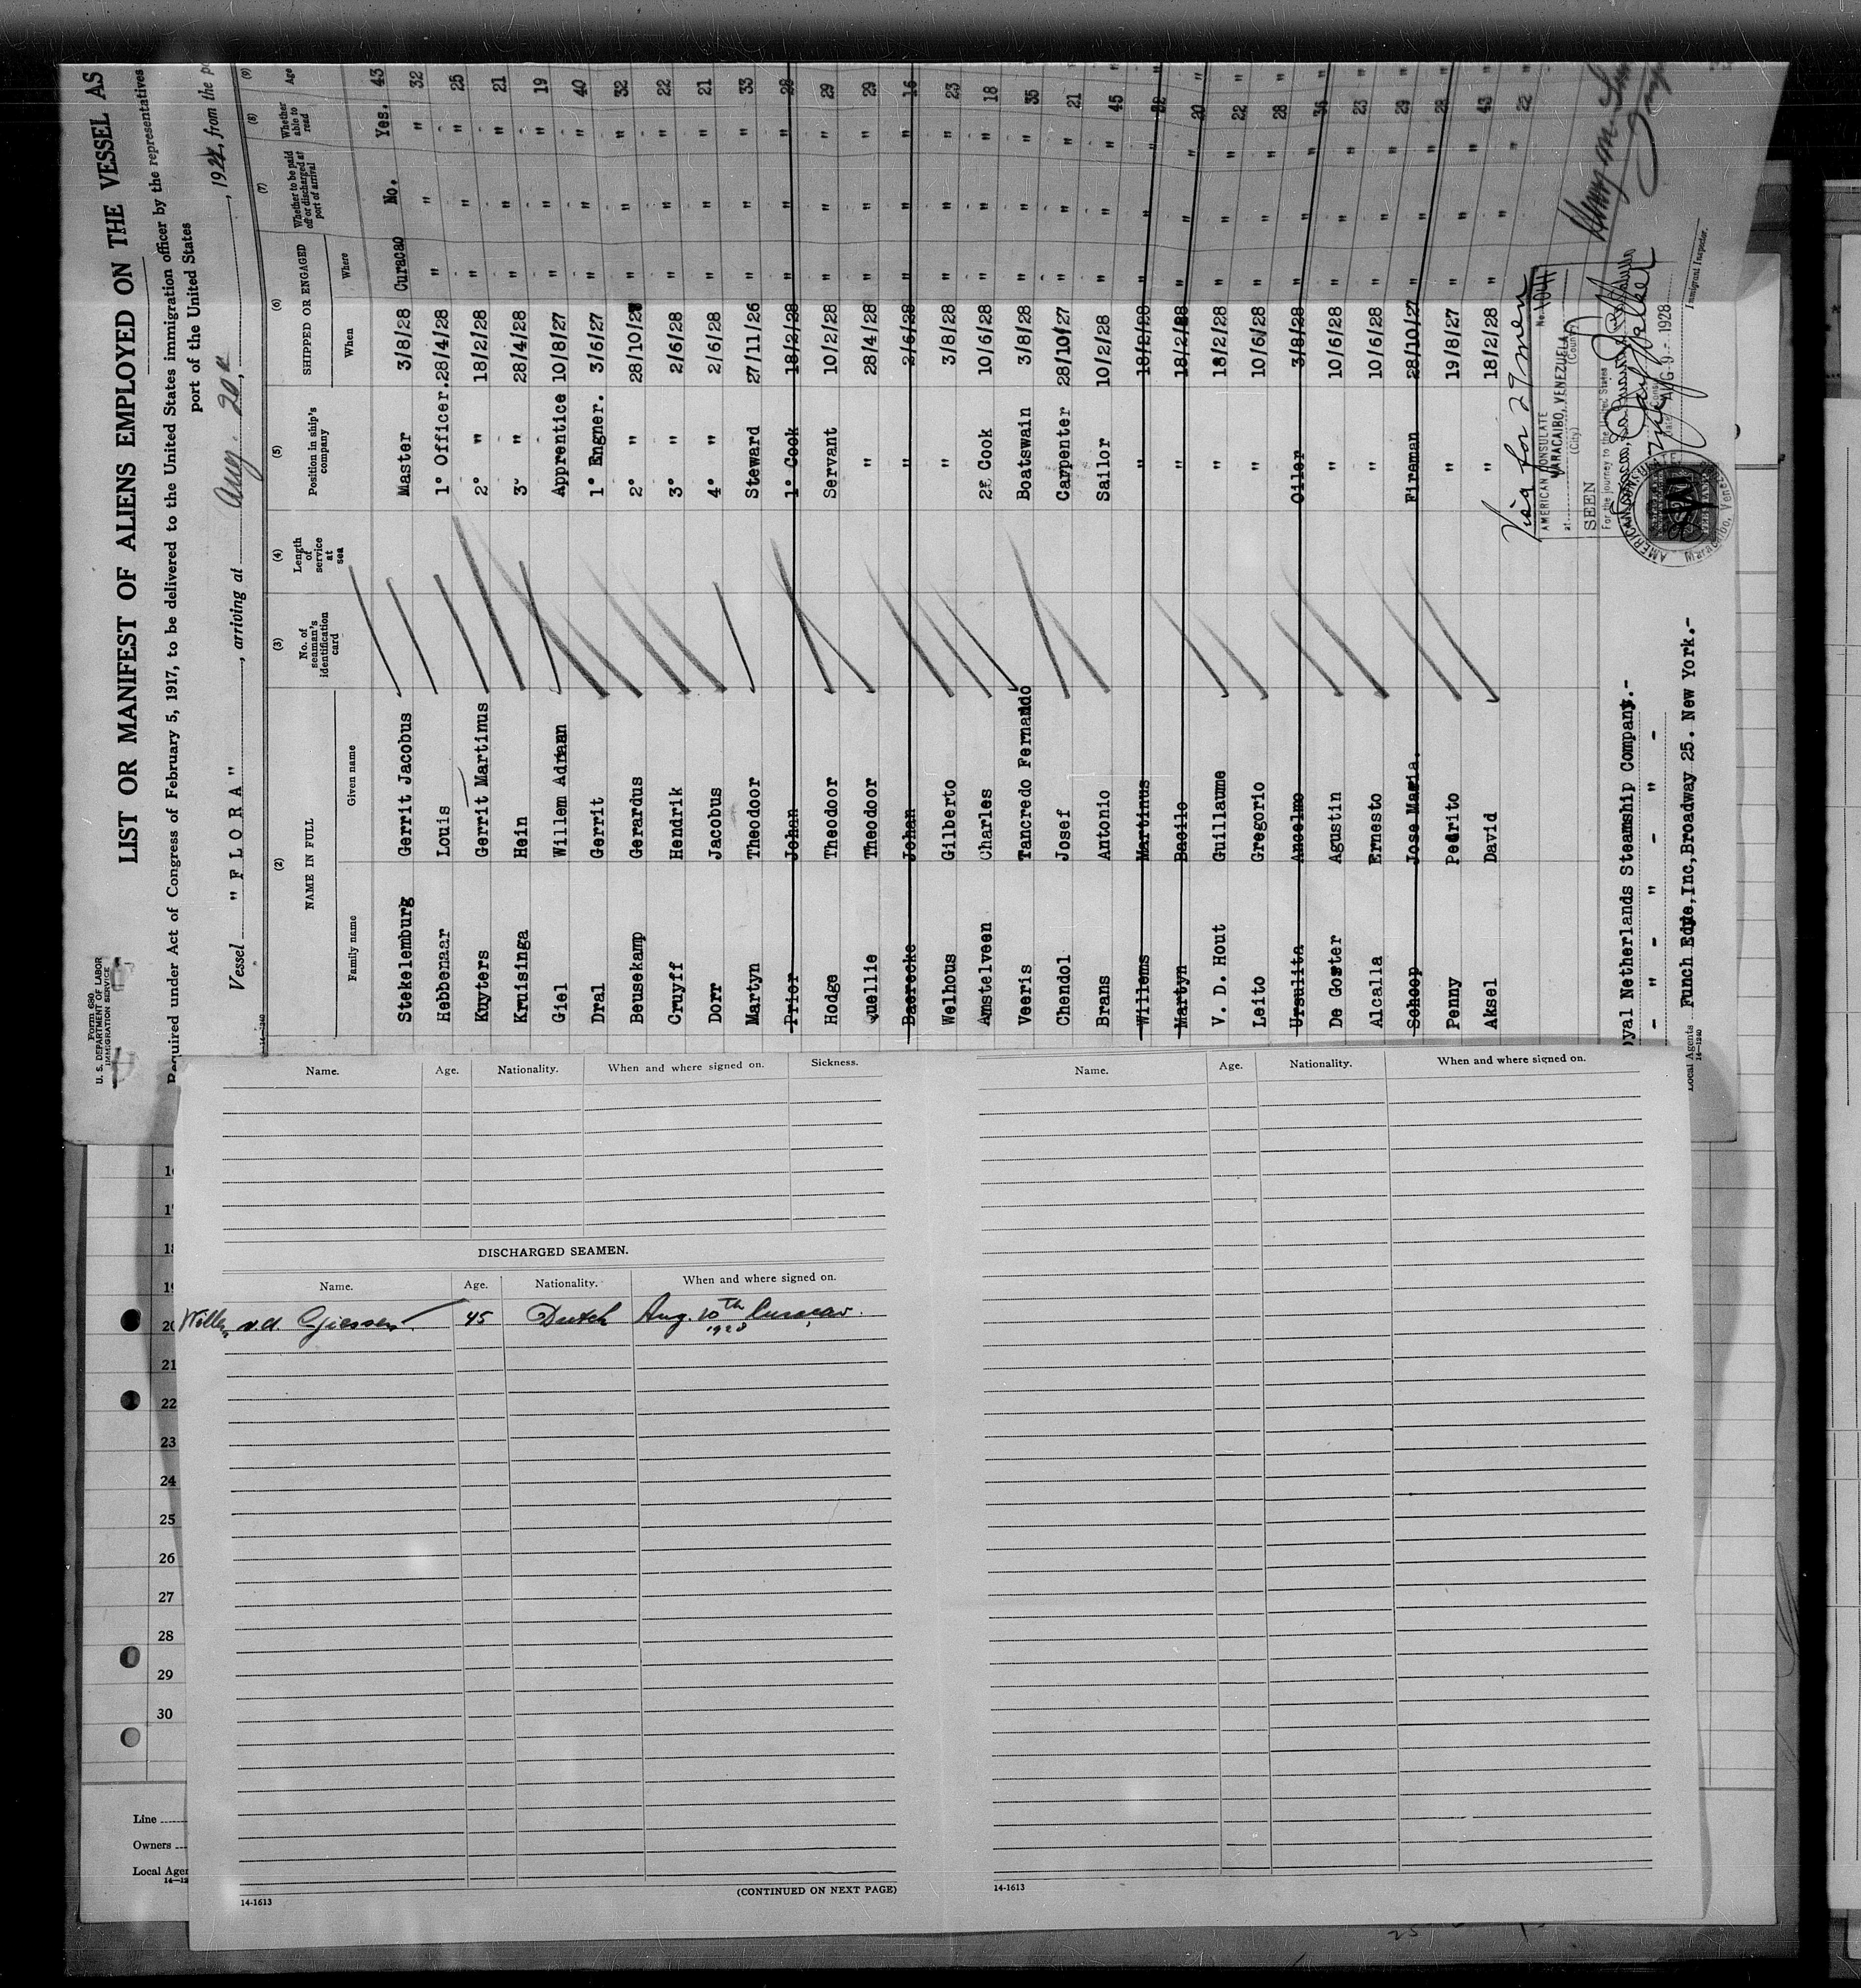 Form 680
U. S. DEPARTMENT OF LABOR
IMMIGRATION SERVICE
LIST OR MANIFEST OF ALIENS EMPLOYED ON THE VESSEL AS
Required under Act of Congress of February 5, 1917, to be delivered to the United States immigration officer by the representatives
port of the United States
Vessel "FLORA", arriving at Aug. 20th, 192, from the po
(2) (3) (4) (5) (6) (7) (8) (9)
NAME IN FULL No. of seaman's identification card Length of service at sea Position in ship's company SHIPPED OR ENGAGED Whether to be paid off or discharged at port of arrival Whether able to read Age
Family name Given name When Where
Stekelemburg Gerrit Jacobus Master 3/8/28 Curacao No. Yes. 43
Hebbenaar Louis 1° Officer. 28/4/28 " " " 32
Kuyters Gerrit Martinus 2° " 18/2/28 " " " 25
Kruisinga Hein 3° " 28/4/28 " " " 21
Giel Willem Adriaan Apprentice 10/8/27 " " " 19
Dral Gerrit 1° Engner. 3/6/27 " " " 40
Beusekamp Gerardus 2° " 28/10/27 " " " 32
Cruyff Hendrik 3° " 2/6/28 " " " 22
Dorr Jacobus 4° " 2/6/28 " " " 21
Martyn Theodoor Steward 27/11/26 " " " 33
Prior Johan 1° Cook 18/2/28 " " " 28
Hodge Theodoor Servant 10/2/28 " " " 29
Quellie Theodoor " 28/4/28 " " " 29
Baerecke Johan " 2/6/28 " " " 16
Welhous Gilberto " 3/8/28 " " " 23
Amstelveen Charles 2e Cook 10/6/28 " " " 18
Veeris Tancredo Fernando Boatswain 3/8/28 " " " 35
Chendol Josef Carpenter 28/10/27 " " " 21
Brans Antonio Sailor 10/2/28 " " " 45
Willems Martinus " 18/2/28 " " " 22
Martyn Basilo " 18/2/28 " " " 20
V. D. Hout Guillaume " 18/2/28 " " " 22
Leito Gregorio " 10/6/28 " " " 28
Ursulita Ancelmo Oiler 3/8/28 " " " 36
De Goster Agustin " 10/6/28 " " " 23
Alcalla Ernesto " 10/6/28 " " " 29
Schoop Jose Maria. Fireman 28/10/27 " " " 28
Penny Pedrito " 19/8/27 " " " 43
Aksel David " 18/2/28 " " " 22
Visa for 29 men
AMERICAN CONSULATE No. 1041
at MARACAIBO, VENEZUELA
(City) (Country)
SEEN
For the journey to the United States
AUG 9 - 1928
Immigrant Inspector.
oyal Netherlands Steamship Company.-
- " - " - " -
Local Agents Funch Edye, Inc, Broadway 25. New York.-
14-1240
Name. Age. Nationality. When and where signed on. Sickness.
DISCHARGED SEAMEN.
Name. Age. Nationality. When and where signed on.
Willem v.d. Giessen 45 Dutch Aug. 10th Curaçao.
1928
14-1613
(CONTINUED ON NEXT PAGE)
Name. Age. Nationality. When and where signed on.
14-1613
16
17
18
19
20
21
22
23
24
25
26
27
28
29
30
Line
Owners
Local Agen